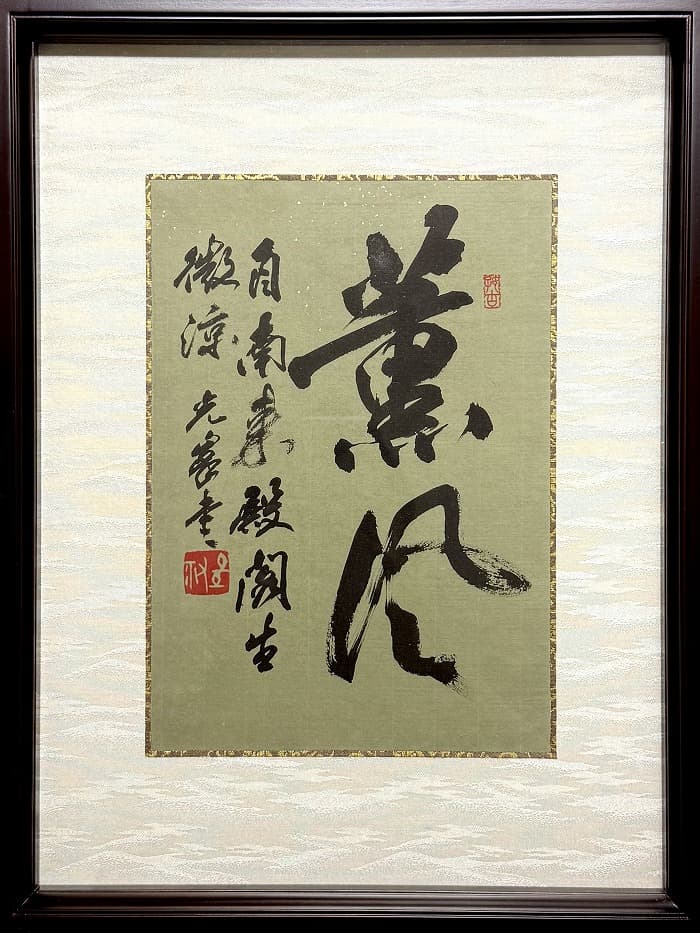 薫風
自南来殿閣生
微涼 光峯書